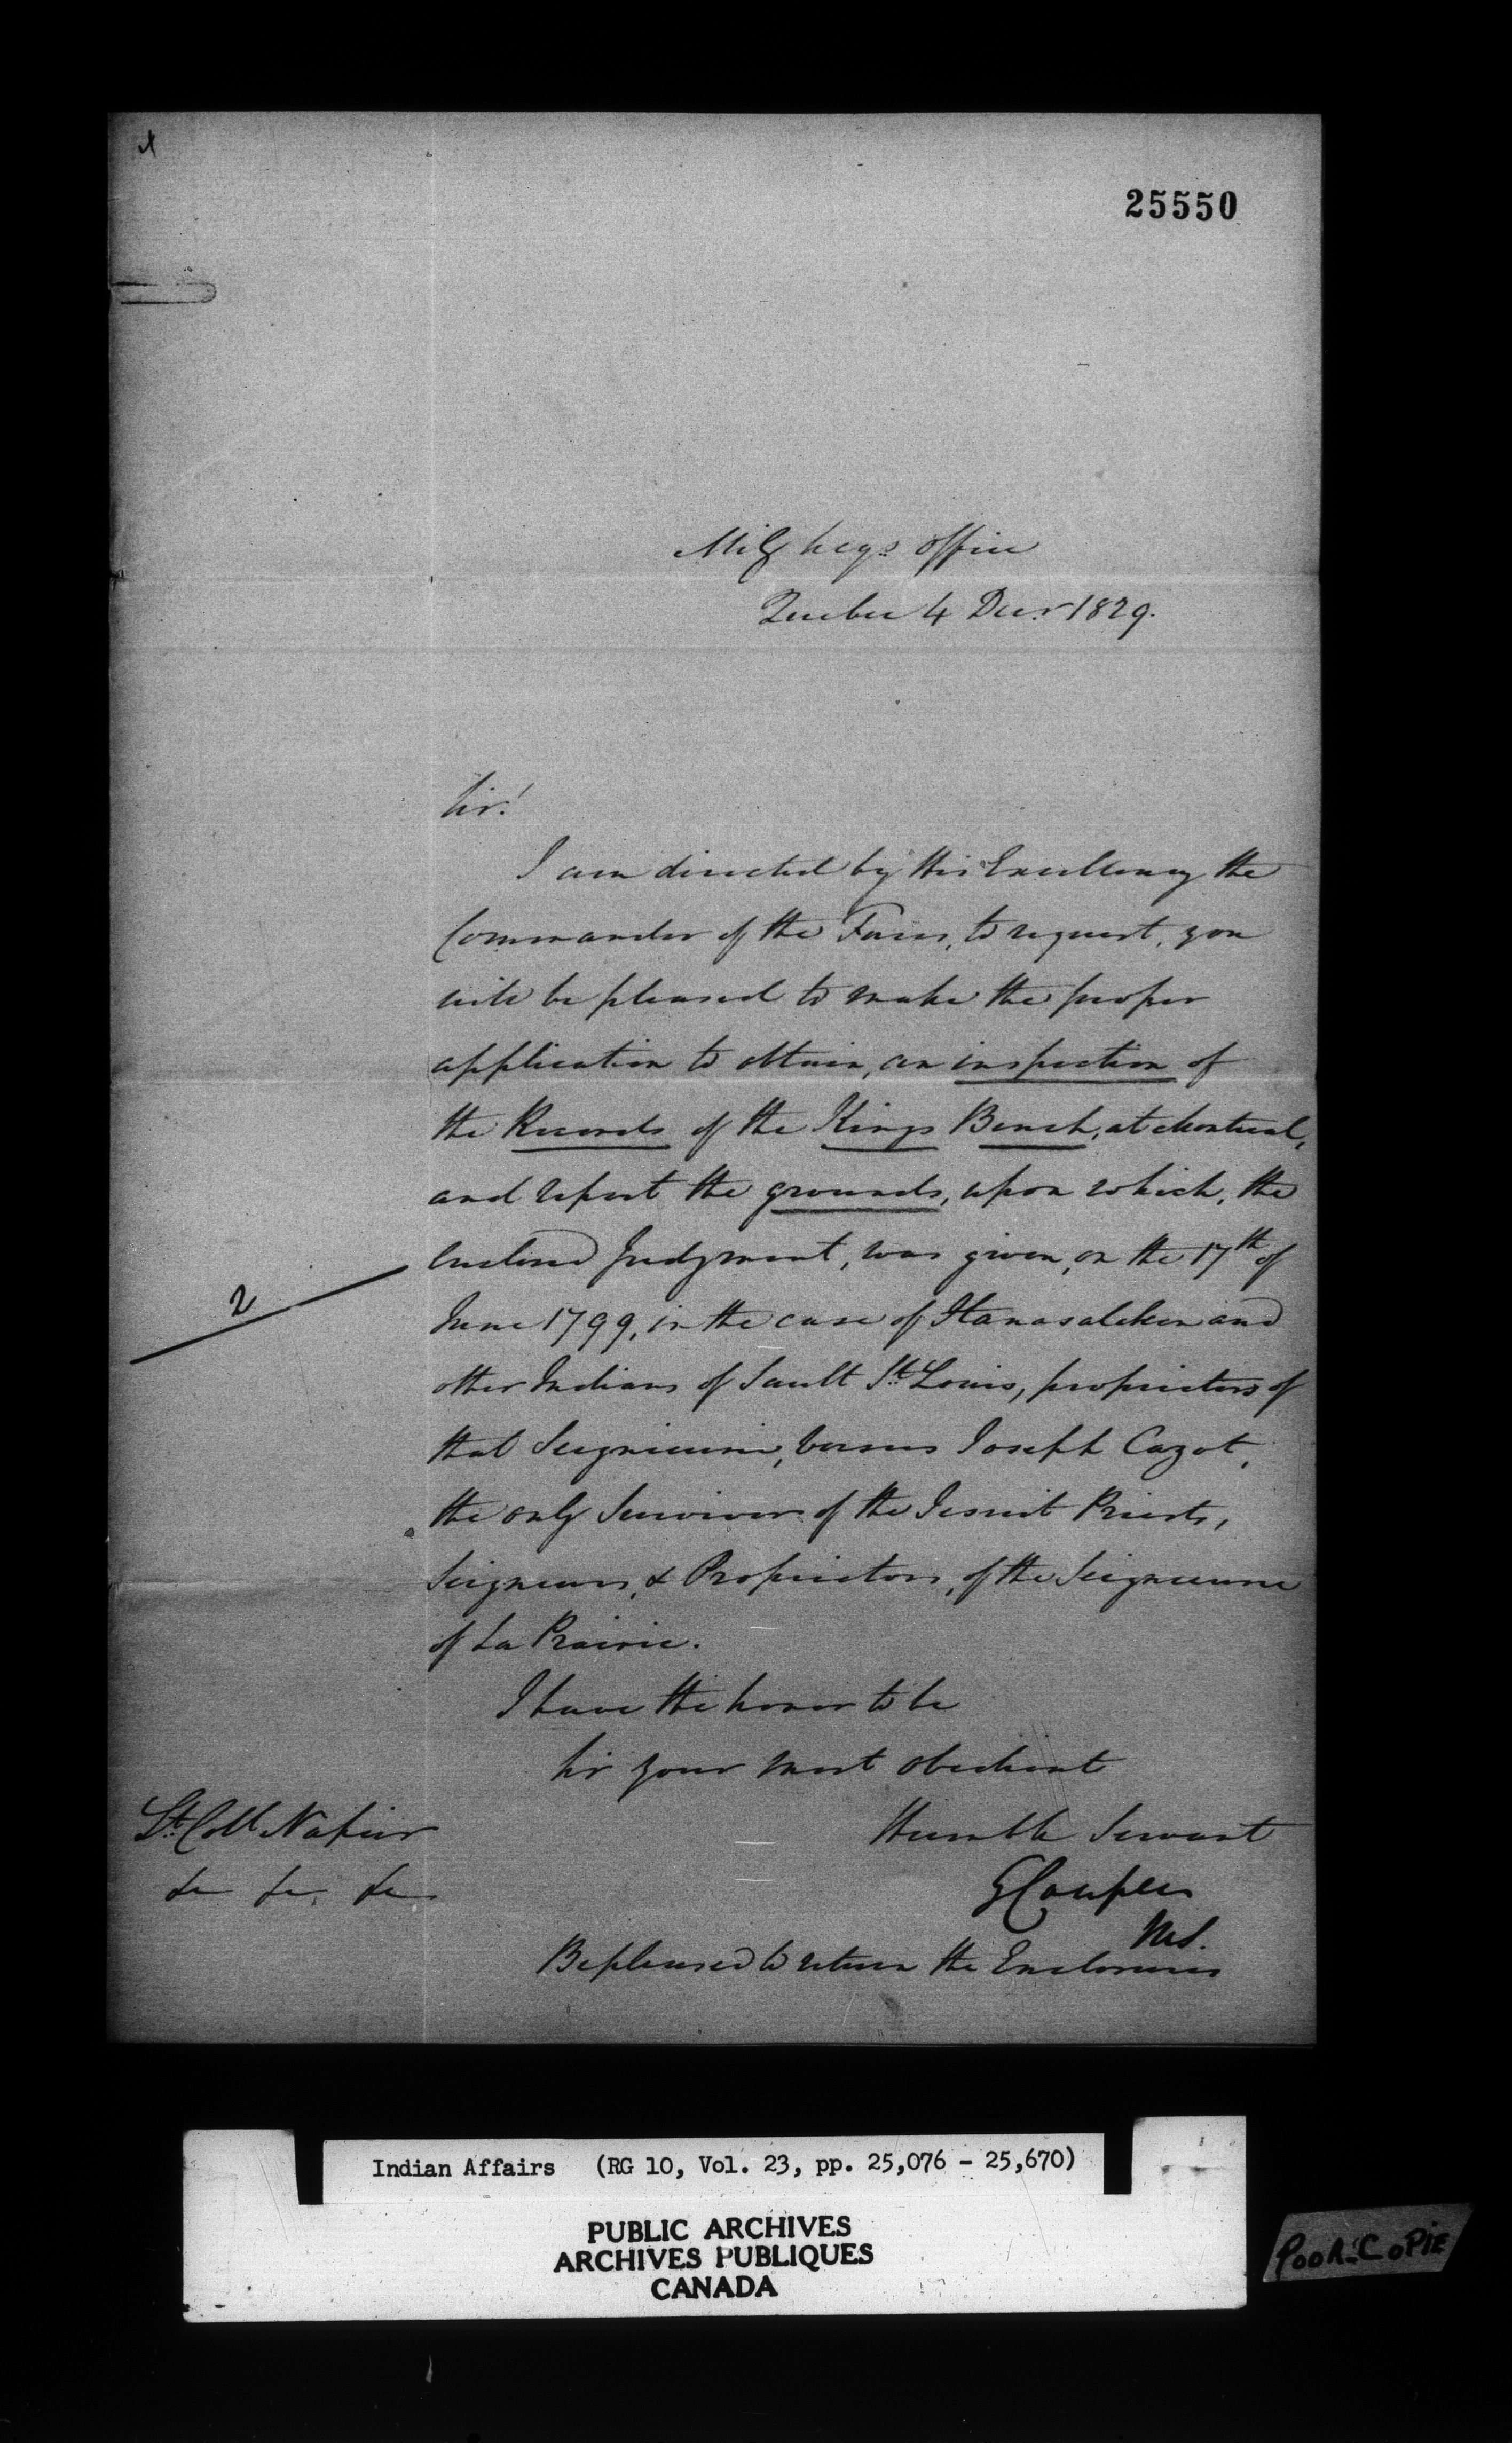 25550
Mily Secy's Office
Quebec 4 Decr 1829.
Sir!
I am directed by His Excellency the
Commander of the Forces, to request, you
will be pleased to make the proper
application to obtain, an inspection of
the Records of the Kings Bench, at Montreal,
and report the grounds, upon which, the
enclosed Judgment, was given, on the 17th of
2
June 1799, in the case of Hanasaleken and
other Indians of Sault St Louis, proprietors of
that Seigneurie, versus Joseph Cazot,
the only Survivor of the Jesuit Priests,
Seigneurs, & Proprietors, of the Seigneurie
of La Prairie.
I have the honor to be
Sir your most obedient
Humble Servant
Lt Coll Napier
&c &c &c
G Couper
MS.
Be pleased to return the Enclosures
Indian Affairs (RG 10, Vol. 23, pp. 25,076 - 25,670)
PUBLIC ARCHIVES
ARCHIVES PUBLIQUES
CANADA
POOR COPIE